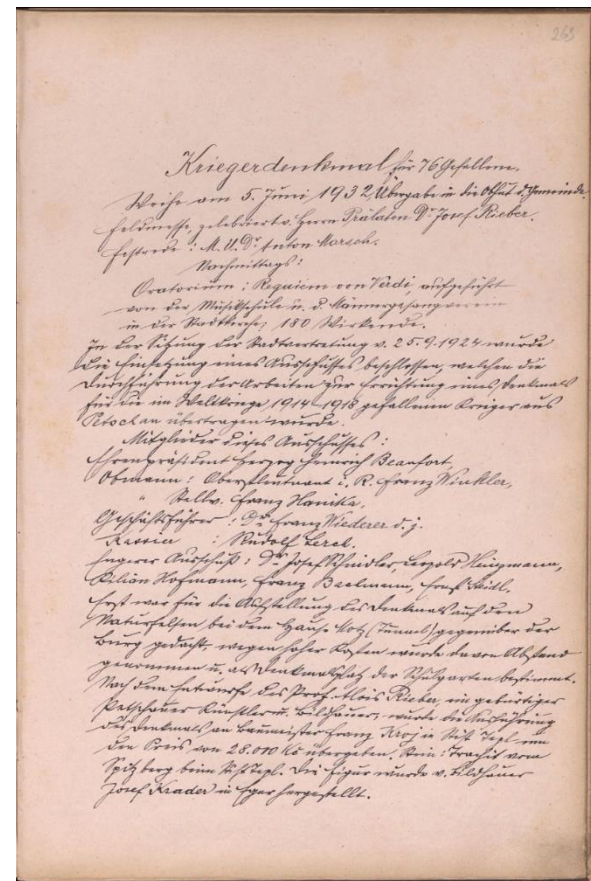 263
Kriegerdenkmal für 76 Gefallene.
Weihe am 5. Juni 1932, Übergabe in die Obhut d. Gemeinde.
Feldmesse, zelebriert v. Herrn Prälaten Dr. Josef Rieber.
Festrede: M.U.Dr. Anton Marsch.
Nachmittags:
Oratorium: Requiem von Verdi, aufgeführt
von der Musikschule u. d. Männergesangverein
in der Stadtkirche; 180 Wirkende.
In der Sitzung der Stadtvertretung v. 25.9.1924 wurde
die Einsetzung eines Ausschusses beschlossen, welchen die
Durchführung der Arbeiten zur Errichtung eines Denkmals
für die im Weltkriege 1914–1918 gefallenen Krieger aus
Petschau übertragen wurde.
Mitglieder dieses Ausschusses:
Ehrenpräsident Herzog Heinrich Beaufort,
Obmann: Oberstleutnant i. R. Franz Winkler,
" Stellv. Franz Hanika,
Geschäftsführer: Dr. Franz Wiederer d. j.
Kassier: Rudolf Lerch.
Engerer Ausschuß: Dr. Josef Schindler, Leopold Heinzmann,
Kilian Hofmann, Franz Bachmann, Ernst Seidl.
Erst war für die Aufstellung des Denkmals auf den
Naturfelsen bei dem Hause Lotz (Tunnel) gegenüber der
Burg gedacht, wegen hoher Kosten wurde davon Abstand
genommen u. als Denkmalplatz der Schulgarten bestimmt.
Nach dem Entwurfe des Prof. Alois Rieber, ein gebürtiger
Petschauer Künstler u. Bildhauer, wurde die Ausführung
des Denkmals an Baumeister Franz Kroj in Stift Tepl um
den Preis von 28.000 Kč übergeben. Stein: Trachit vom
Spitzberg beim Stift Tepl. Die Figur wurde v. Bildhauer
Josef Krader in Eger hergestellt.